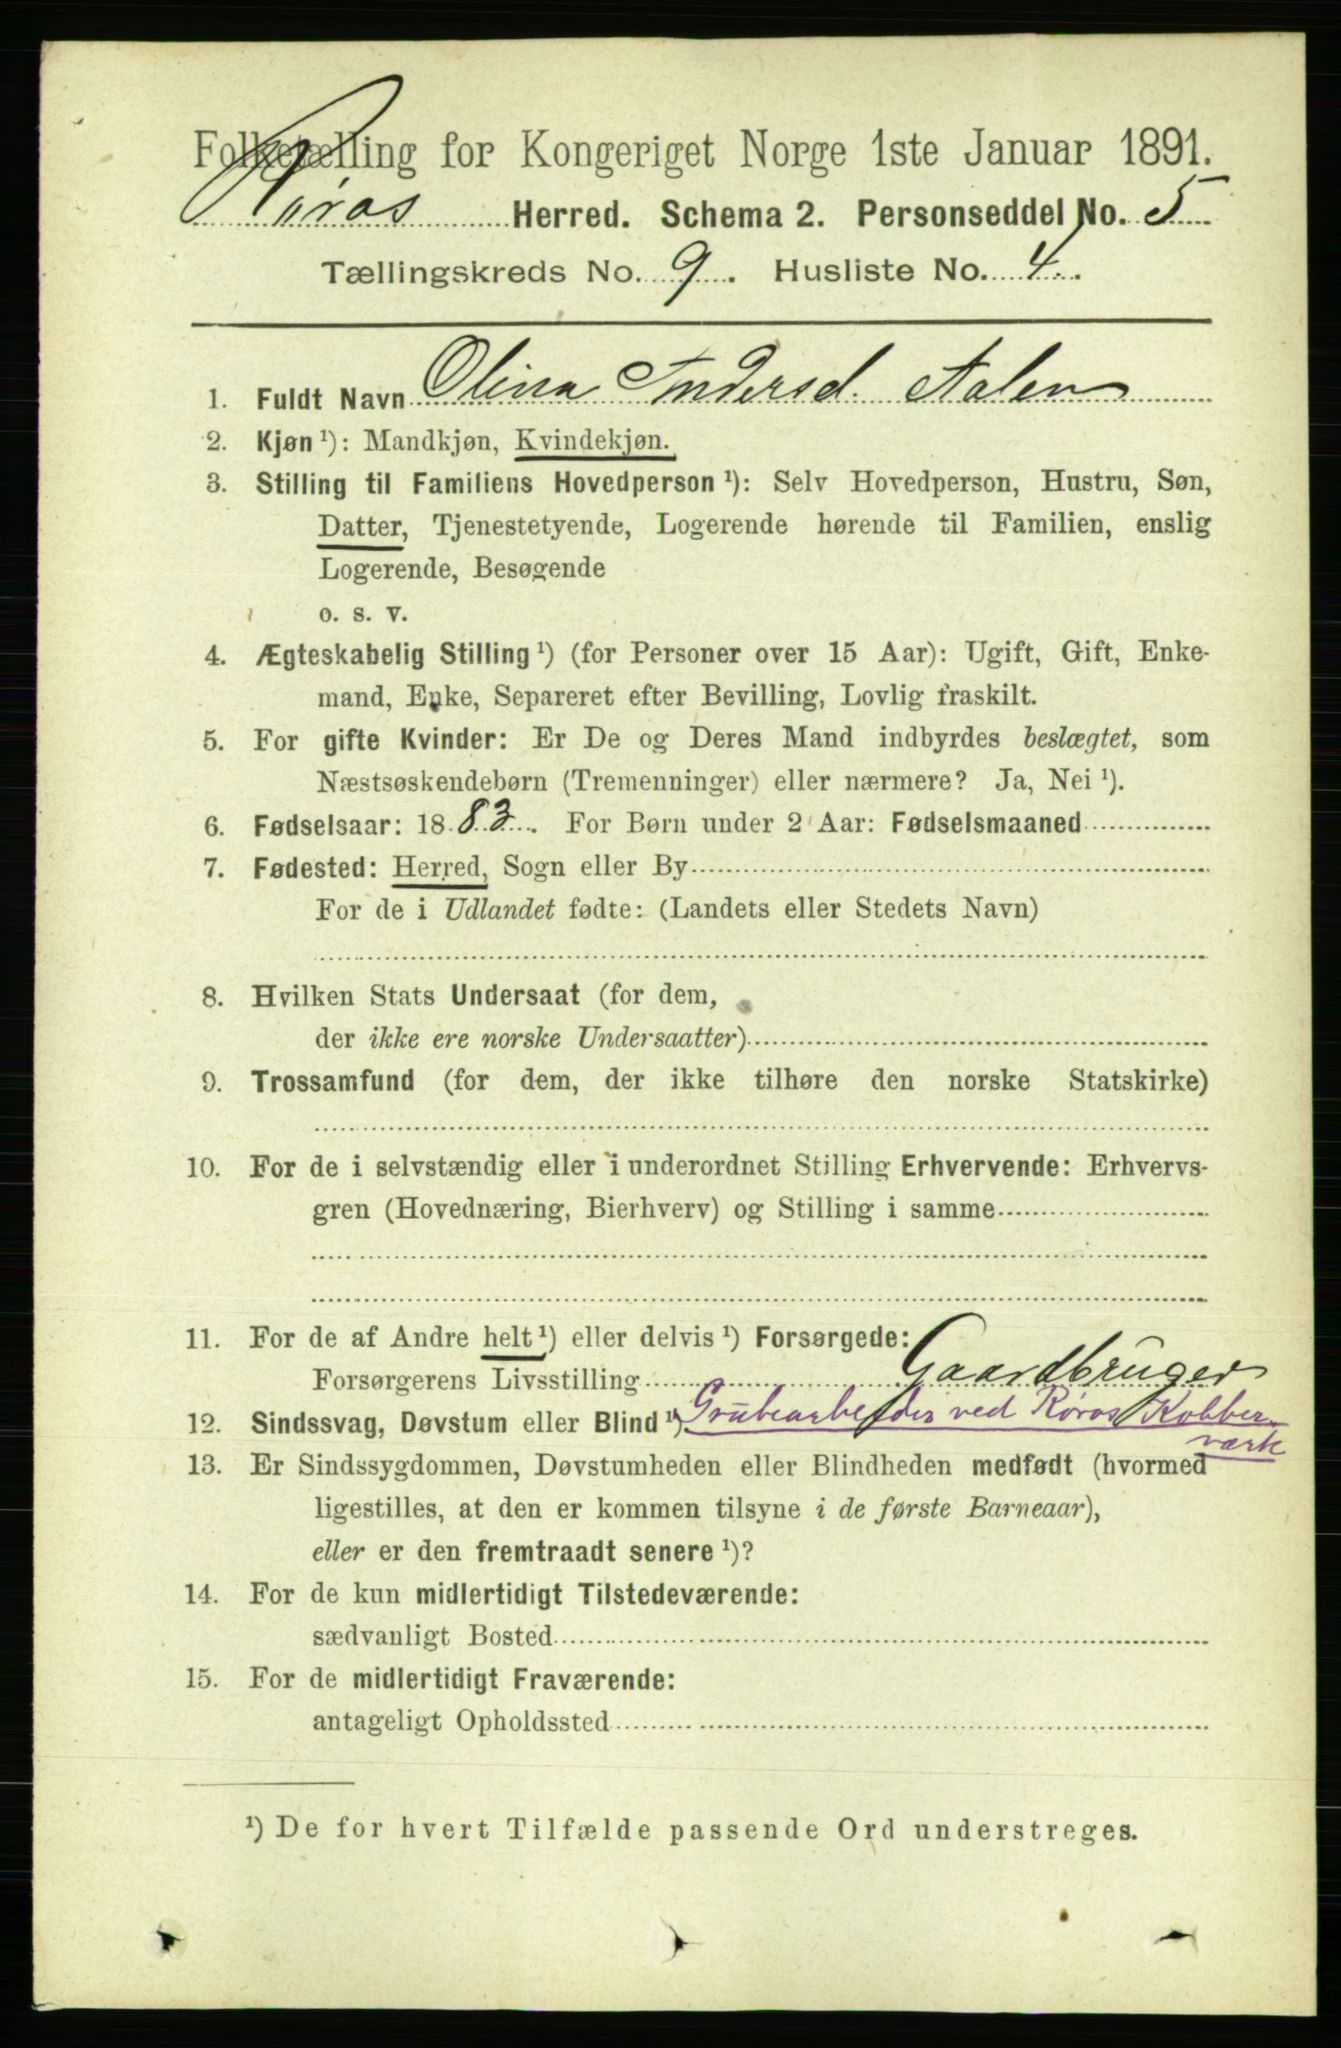 Folketælling for Kongeriget Norge 1ste Januar 1891.
Røros Herred. Schema 2. Personseddel No. 5
Tællingskreds No. 9. Husliste No. 4.
1. Fuldt Navn Olina Indersd. Aalen
2. Kjøn ¹): Mandkjøn, Kvindekjøn.
3. Stilling til Familiens Hovedperson ¹): Selv Hovedperson, Hustru, Søn,
Datter, Tjenestetyende, Logerende hørende til Familien, enslig
Logerende, Besøgende
o. s. v.
4. Ægteskabelig Stilling ¹) (for Personer over 15 Aar): Ugift, Gift, Enke-
mand, Enke, Separeret efter Bevilling, Lovlig fraskilt.
5. For gifte Kvinder: Er De og Deres Mand indbyrdes beslægtet, som
Næstsøskendebørn (Tremenninger) eller nærmere? Ja, Nei ¹).
6. Fødselsaar: 1883. For Børn under 2 Aar: Fødselsmaaned
7. Fødested: Herred, Sogn eller By
For de i Udlandet fødte: (Landets eller Stedets Navn)
8. Hvilken Stats Undersaat (for dem,
der ikke ere norske Undersaatter)
9. Trossamfund (for dem, der ikke tilhøre den norske Statskirke)
10. For de i selvstændig eller i underordnet Stilling Erhvervende: Erhvervs-
gren (Hovednæring, Bierhverv) og Stilling i samme
11. For de af Andre helt ¹) eller delvis ¹) Forsørgede:
Forsørgerens Livsstilling Gaardbruger
12. Sindssvag, Døvstum eller Blind ¹) Grubearbeider ved Røros Kobber-
værk
13. Er Sindssygdommen, Døvstumheden eller Blindheden medfødt (hvormed
ligestilles, at den er kommen tilsyne i de første Barneaar),
eller er den fremtraadt senere ¹)?
14. For de kun midlertidigt Tilstedeværende:
sædvanligt Bosted
15. For de midlertidigt Fraværende:
antageligt Opholdssted
¹) De for hvert Tilfælde passende Ord understreges.